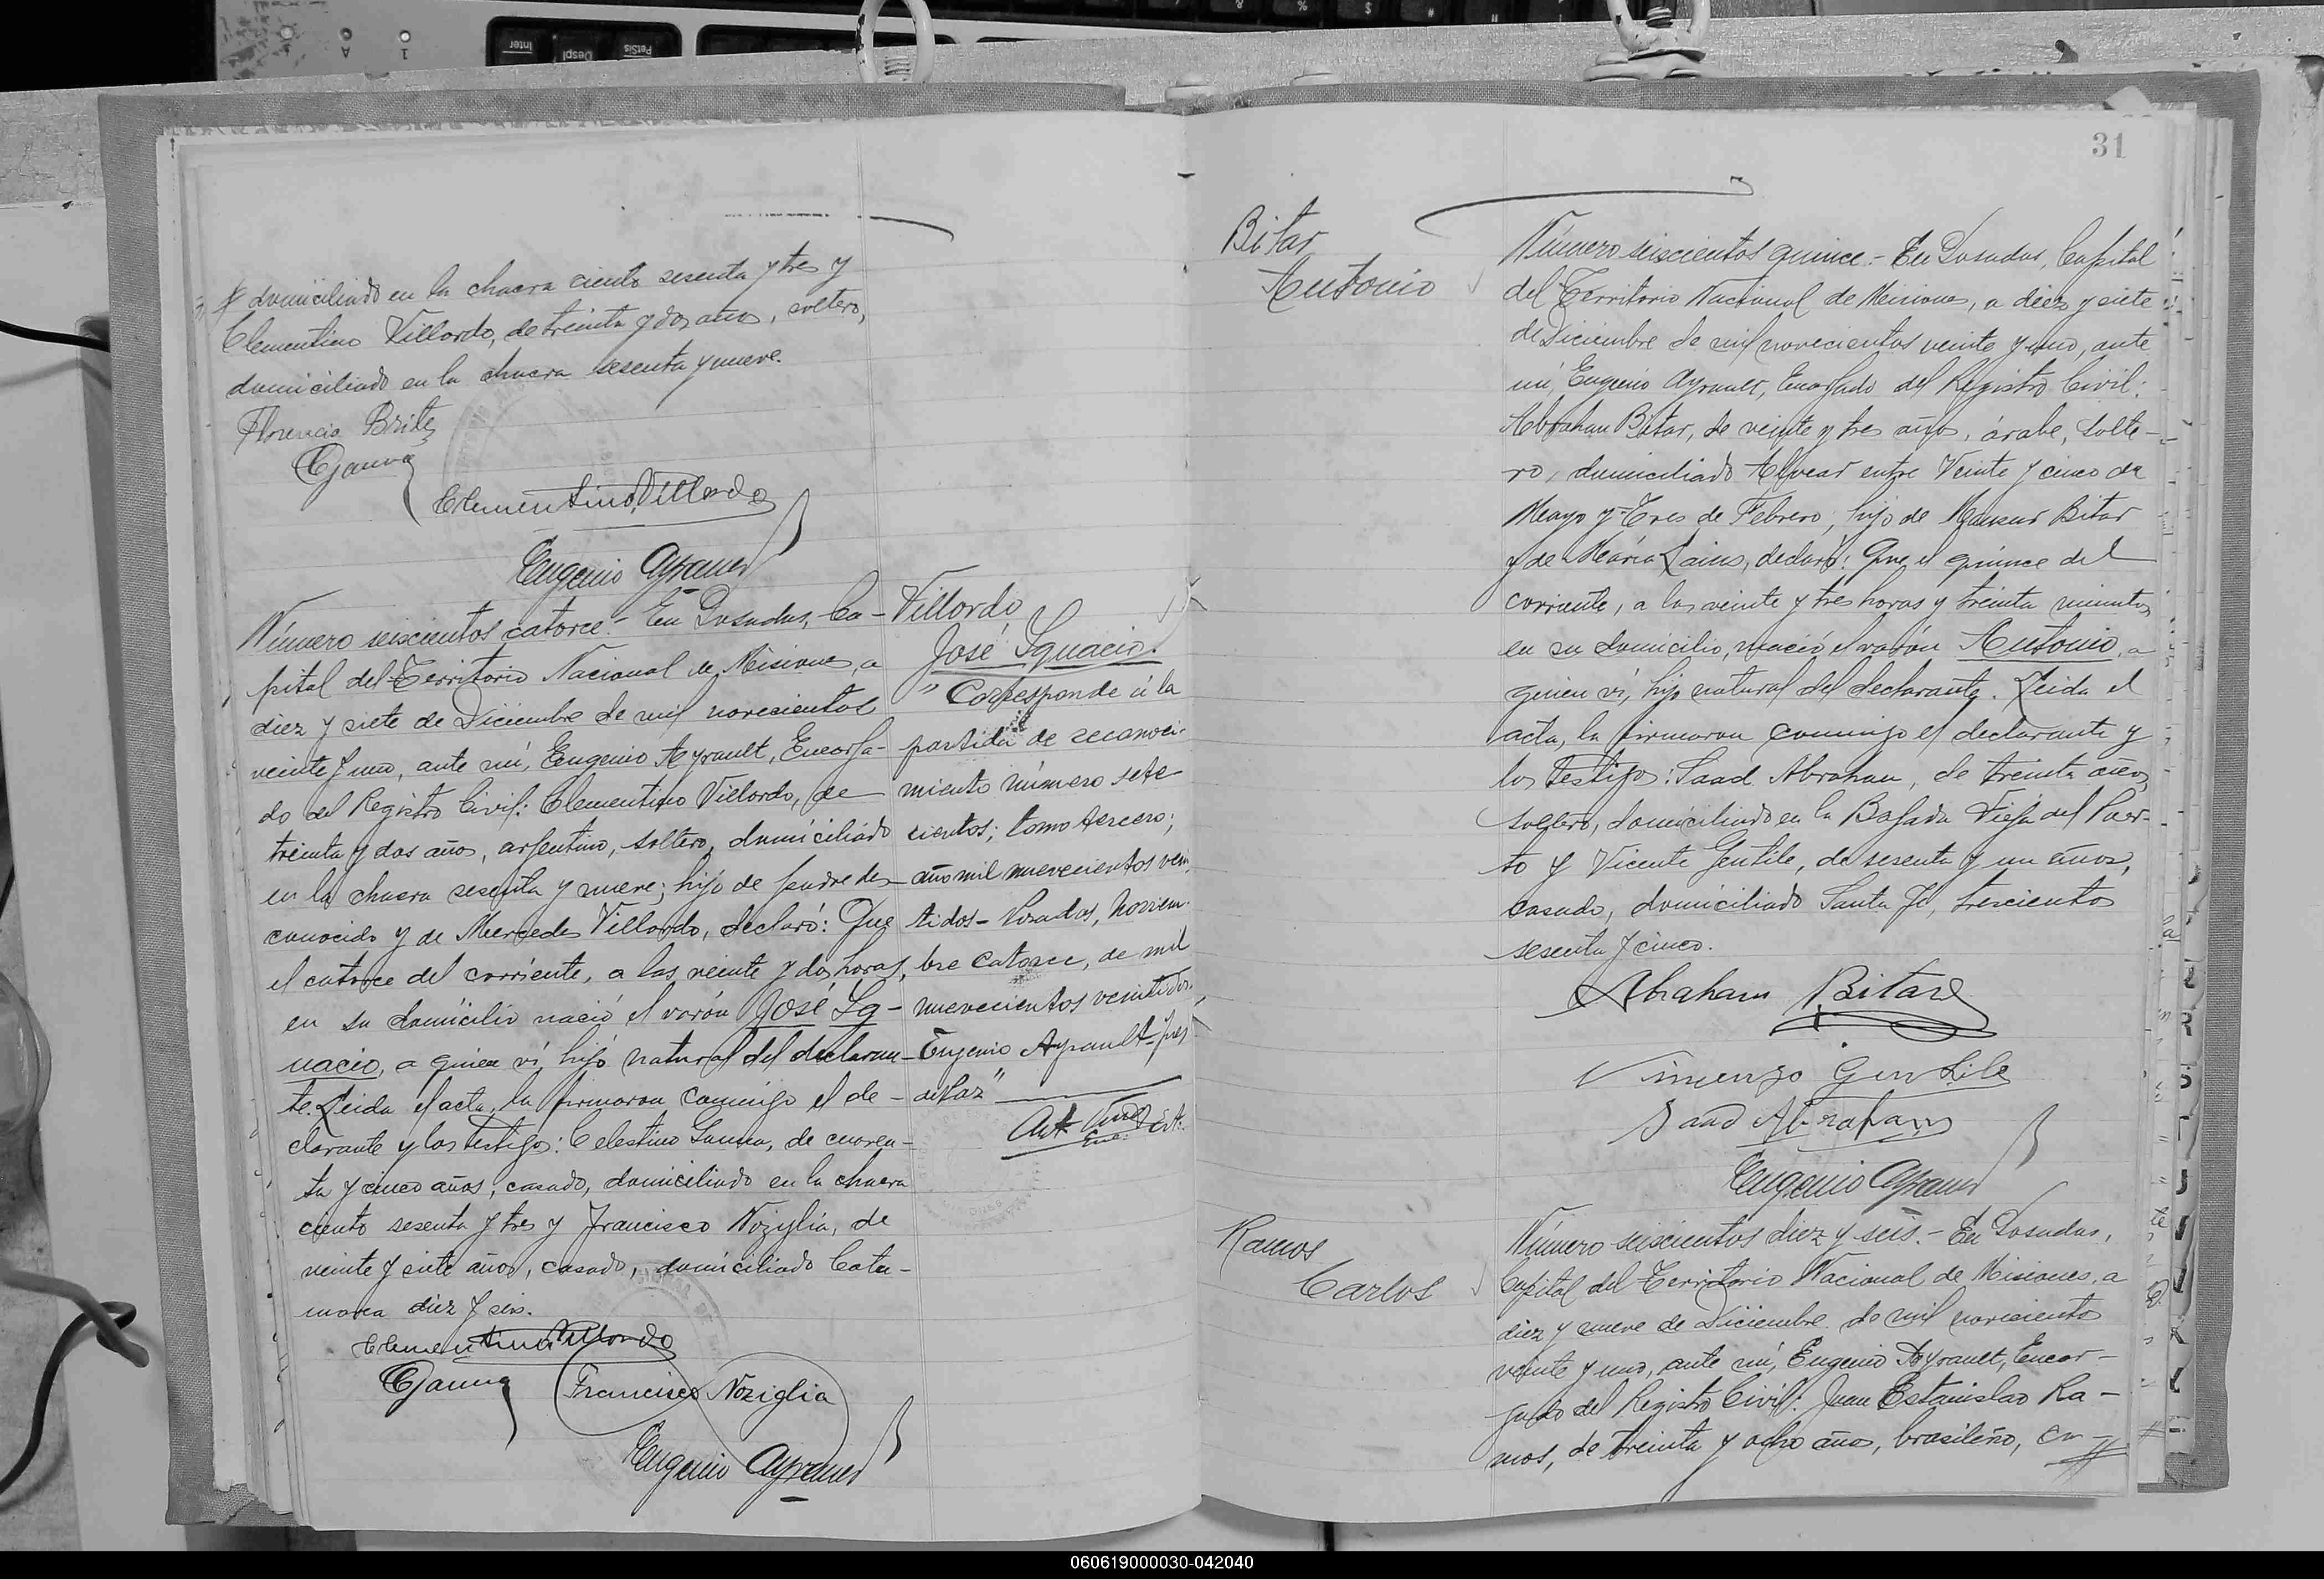 domiciliado en la chacra ciento sesenta y tres y
Clementino Villordo, de treinta y dos años, soltero,
domiciliado en la chacra sesenta y nueve.
Florencio Brites
CGauna
Clementino Villordo
Eugenio Ayrault
Número seiscientos catorce.- En Posadas, Ca-
pital del Territorio Nacional de Misiones, a
diez y siete de Diciembre de mil novecientos
veinte y uno, ante mí, Eugenio Ayrault, Encarga-
do del Registro Civil: Clementino Villordo, de
treinta y dos años, argentino, soltero, domiciliado
en la chacra sesenta y nueve; hijo de padre des-
conocido y de Mercedes Villordo, declaró: Que
el catorce del corriente, a las veinte y dos horas,
en su domicilio nació el varón José Ig-
nacio, a quien ví, hijo natural del declaran-
te. Leida el acta, la firmaron conmigo el de-
clarante y los testigos: Celestino Gauna, de cuaren-
ta y cinco años, casado, domiciliado en la chacra
ciento sesenta y tres y Francisco Noziglia, de
veinte y siete años, casado, domiciliado Cata-
marca diez y seis.
Clementino Villordo
CGauna
Francisco Noziglia
Eugenio Ayrault
Villordo
José Ignacio.
"Corresponde á la
partida de reconoci-
miento número sete
cientos; tomo tercero;
año mil nuevecientos vein
tidos- Posadas, Noviem-
bre catorce, de mil
nuevecientos veintidos.
Eugenio Ayrault-
31
Bitar
Antonio
Número seiscientos quince.- En Posadas, Capital
del Territorio Nacional de Misiones, a diez y siete
de Diciembre de mil novecientos veinte y uno, ante
mí, Eugenio Ayrault, Encargado del Registro Civil:
Abrahan Bitar, de veinte y tres años, árabe, solte-
ro, domiciliado Alvear entre Veinte y cinco de
Mayo y Tres de Febrero, hijo de Mansur Bitar
y de María Lains, declaró: Que el quince del
corriente, a las veinte y tres horas y treinta minutos
en su domicilio, nació el varón Antonio, a
quien ví, hijo natural del declarante. Leida el
acta, la firmaron conmigo el declarante y
los testigos: Saad Abrahan, de treinta años,
soltero, domiciliado en la Bajada Vieja del Puer-
to y Vicente Gentile, de sesenta y un años,
casado, domiciliado Santa Fe, trescientos
sesenta y cinco.
Abraham Bitar
Vincenzo Gentile
Saad Abraham
Eugenio Ayrault
Ramos
Carlos
Número seiscientos diez y seis.- En Posadas,
Capital del Territorio Nacional de Misiones, a
diez y nueve de Diciembre de mil novecientos
veinte y uno, ante mí, Eugenio Ayrault, Encar-
gado del Registro Civil: Juan Estanislao Ra-
mos, de treinta y ocho años, brasileño, ca-
060619000030-042040